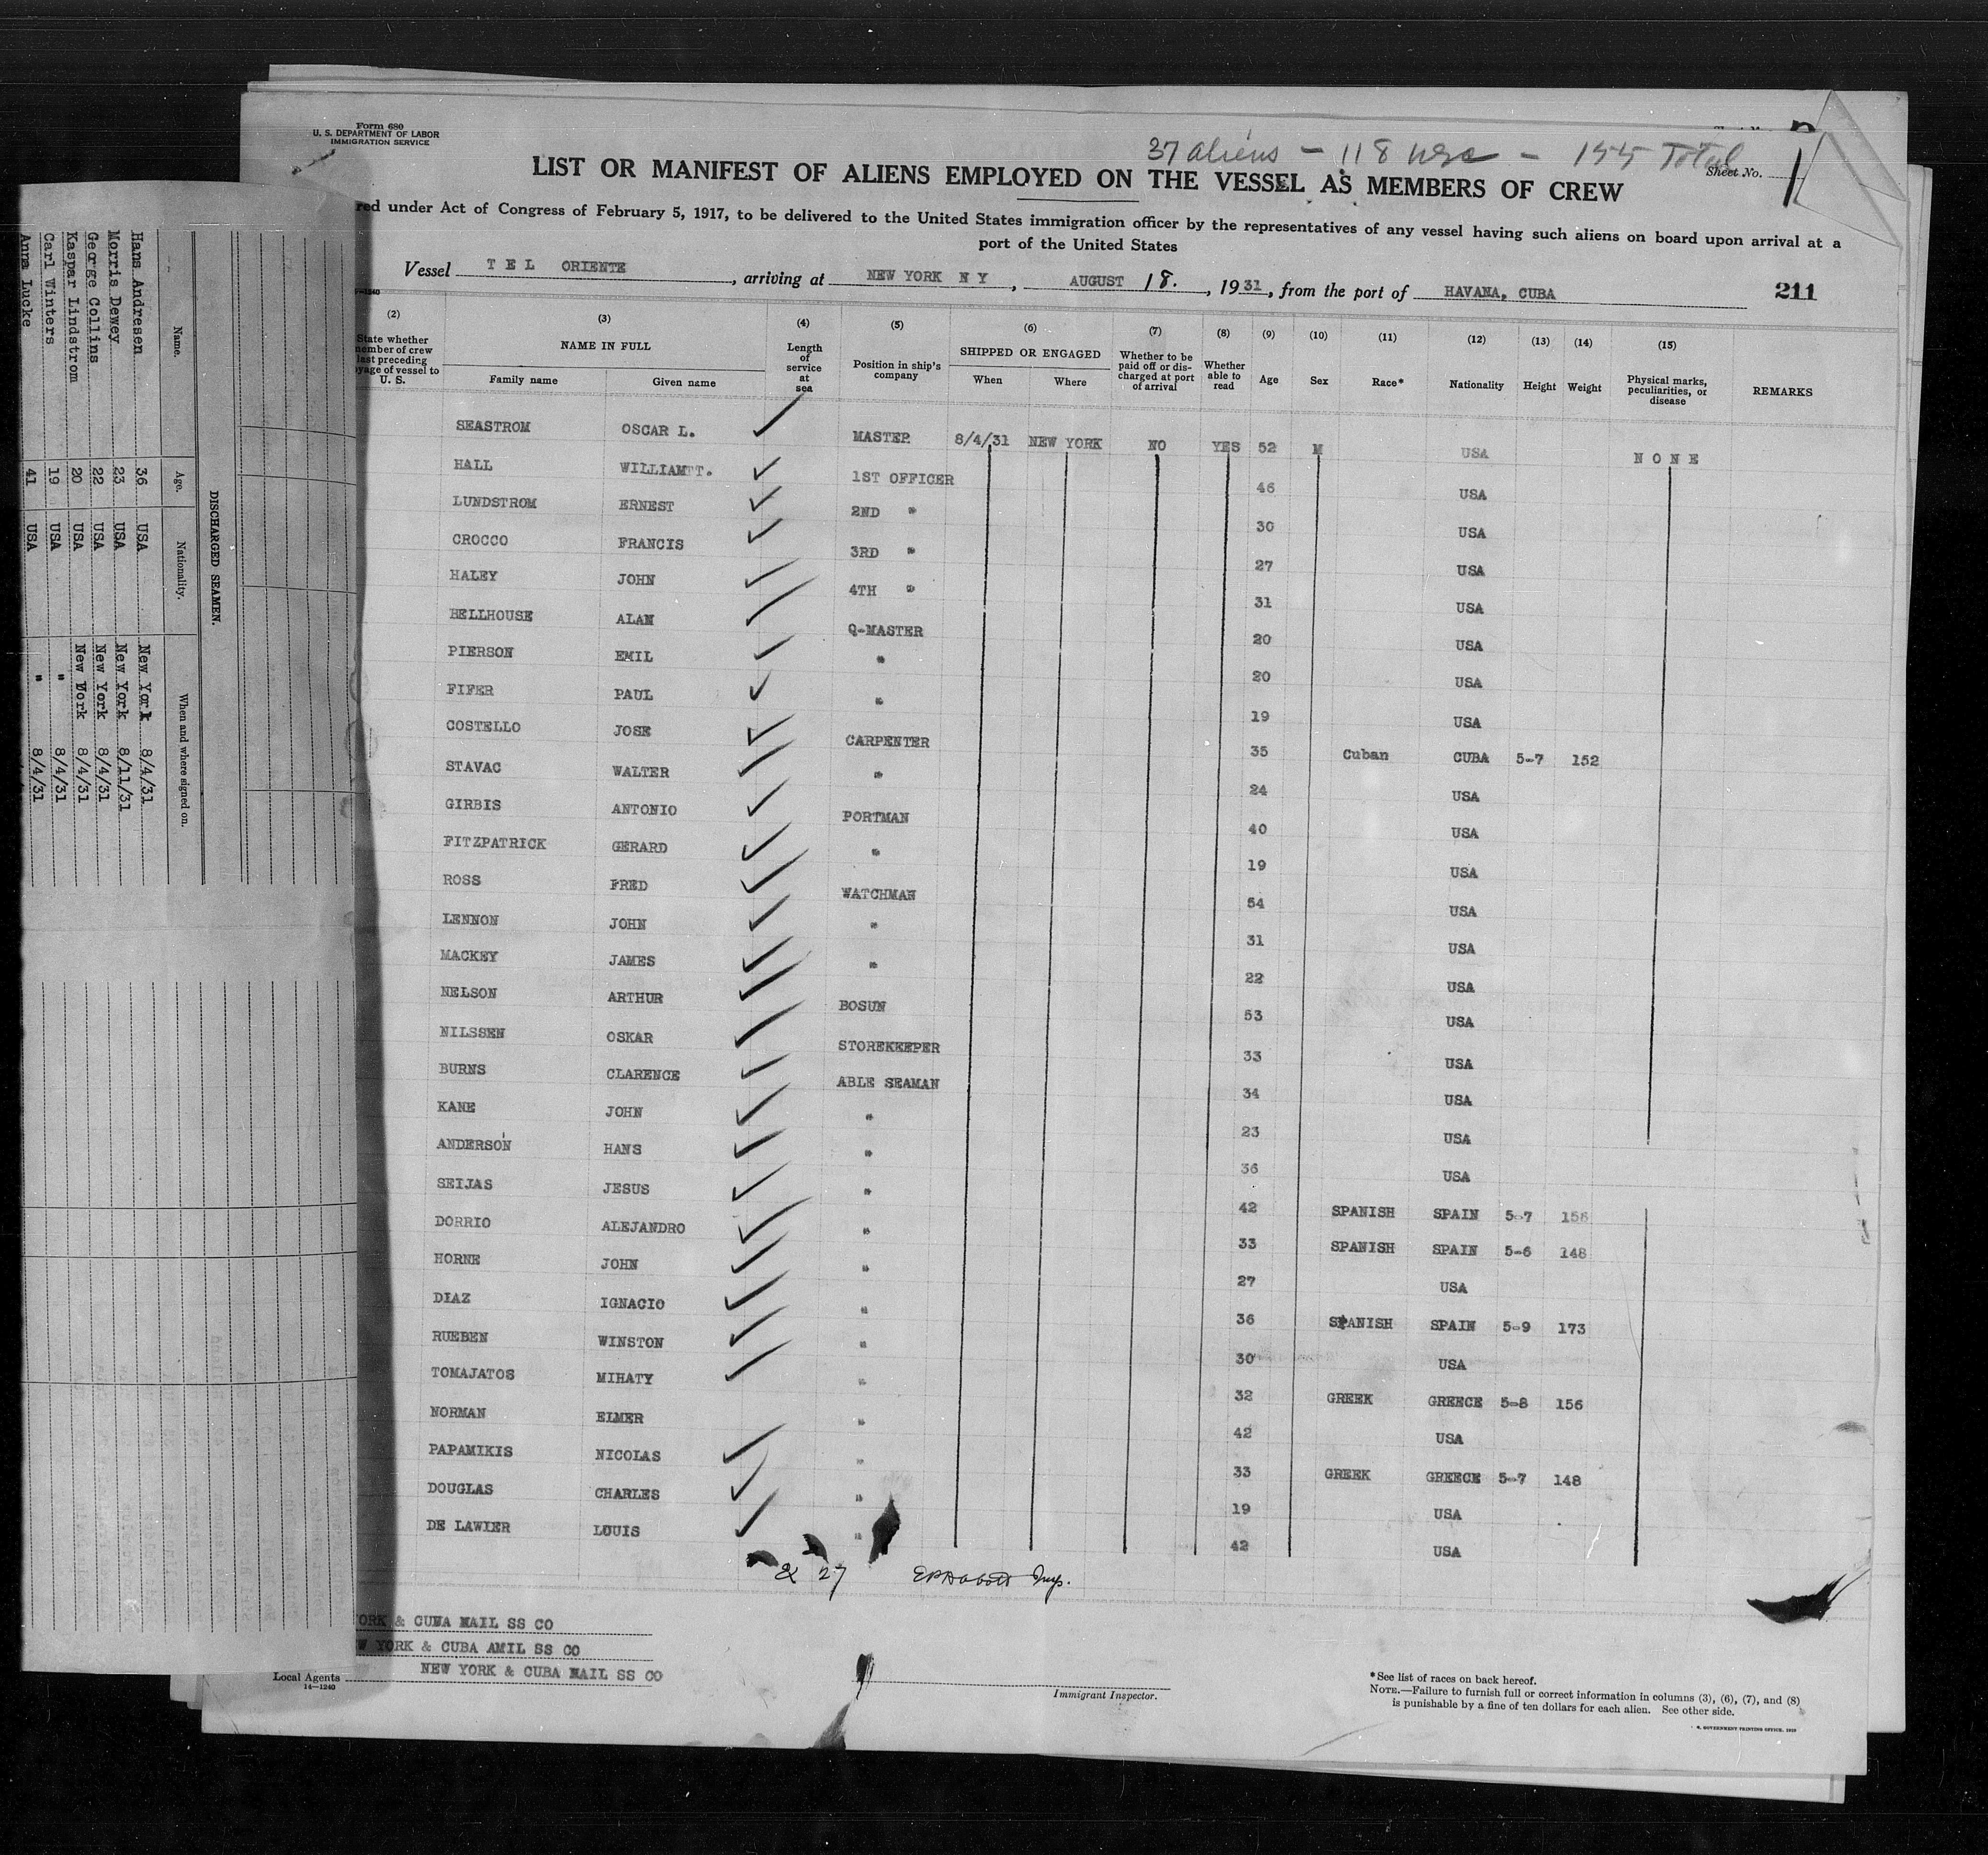 Form 680
U. S. DEPARTMENT OF LABOR
IMMIGRATION SERVICE
37 aliens - 118 usc - 155 Total
Sheet No. 1
LIST OR MANIFEST OF ALIENS EMPLOYED ON THE VESSEL AS MEMBERS OF CREW
red under Act of Congress of February 5, 1917, to be delivered to the United States immigration officer by the representatives of any vessel having such aliens on board upon arrival at a
port of the United States
Vessel T E L ORIENTE, arriving at NEW YORK N Y, AUGUST 18., 1931, from the port of HAVANA, CUBA 211
(2) State whether member of crew last preceding voyage of vessel to U. S.
(3) NAME IN FULL Family name Given name
(4) Length of service at sea
(5) Position in ship's company
(6) SHIPPED OR ENGAGED When Where
(7) Whether to be paid off or discharged at port of arrival
(8) Whether able to read
(9) Age
(10) Sex
(11) Race*
(12) Nationality
(13) Height
(14) Weight
(15) Physical marks, peculiarities, or disease
REMARKS
SEASTROM OSCAR L. MASTER 8/4/31 NEW YORK NO YES 52 M USA N O N E
HALL WILLIAMTT. 1ST OFFICER 46 USA
LUNDSTROM ERNEST 2ND " 30 USA
CROCCO FRANCIS 3RD " 27 USA
HALEY JOHN 4TH " 31 USA
BELLHOUSE ALAN Q-MASTER 20 USA
PIERSON EMIL " 20 USA
FIFER PAUL " 19 USA
COSTELLO JOSE CARPENTER 35 Cuban CUBA 5-7 152
STAVAC WALTER " 24 USA
GIRBIS ANTONIO PORTMAN 40 USA
FITZPATRICK GERARD " 19 USA
ROSS FRED WATCHMAN 54 USA
LENNON JOHN " 31 USA
MACKEY JAMES " 22 USA
NELSON ARTHUR BOSUN 53 USA
NILSSEN OSKAR STOREKEEPER 33 USA
BURNS CLARENCE ABLE SEAMAN 34 USA
KANE JOHN " 23 USA
ANDERSON HANS " 36 USA
SEIJAS JESUS " 42 SPANISH SPAIN 5-7 156
DORRIO ALEJANDRO " 33 SPANISH SPAIN 5-6 148
HORNE JOHN " 27 USA
DIAZ IGNACIO " 36 SPANISH SPAIN 5-9 173
RUEBEN WINSTON " 30 USA
TOMAJATOS MIHATY " 32 GREEK GREECE 5-8 156
NORMAN ELMER " 42 USA
PAPAMIKIS NICOLAS " 33 GREEK GREECE 5-7 148
DOUGLAS CHARLES " 19 USA
DE LAWIER LOUIS " 42 USA
27
ORK & CUBA MAIL SS CO
W YORK & CUBA AMIL SS CO
Local Agents NEW YORK & CUBA MAIL SS CO
14-1240
Immigrant Inspector.
*See list of races on back hereof.
NOTE.—Failure to furnish full or correct information in columns (3), (6), (7), and (8)
is punishable by a fine of ten dollars for each alien. See other side.
GOVERNMENT PRINTING OFFICE
DISCHARGED SEAMEN.
Name. Age. Nationality. When and where signed on.
Hans Andresen 36 USA New York 8/4/31
Morris Dewey 23 USA New York 8/11/31
George Collins 22 USA New York 8/4/31
Kaspar Lindstrom 20 USA New York 8/4/31
Carl Winters 19 USA " 8/4/31
Anna Lucke 41 USA " 8/4/31